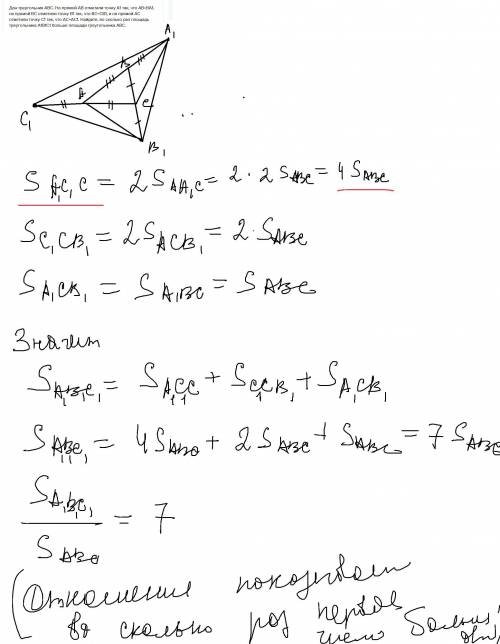 Дан треугольник ABC. На прямой AB отметили точку A1 так, что AB=BA1,
на прямой BC отметили точку B1 так, что BC=CB1, а на прямой AC
отметили точку C1 так, что AC=AC1. Найдите, во сколько раз площадь
треугольника A1B1C1 больше площади треугольника ABC.
A₁
A
C₁
B₁
S A₁C₁C = 2S AA₁C = 2 · 2 S ABC = 4 S ABC
S C₁CB₁ = 2S ACB₁ = 2 · S ABC
S A₁CB₁ = S A₁BC = S ABC
Значит
S A₁B₁C₁ = S A₁C₁C + S C₁CB₁ + S A₁CB₁
S A₁B₁C₁ = 4S ABC + 2 S ABC + S ABC = 7 S ABC
S A₁B₁C₁
= 7
S ABC
(Отношения показывает
во сколько раз первое
число больше